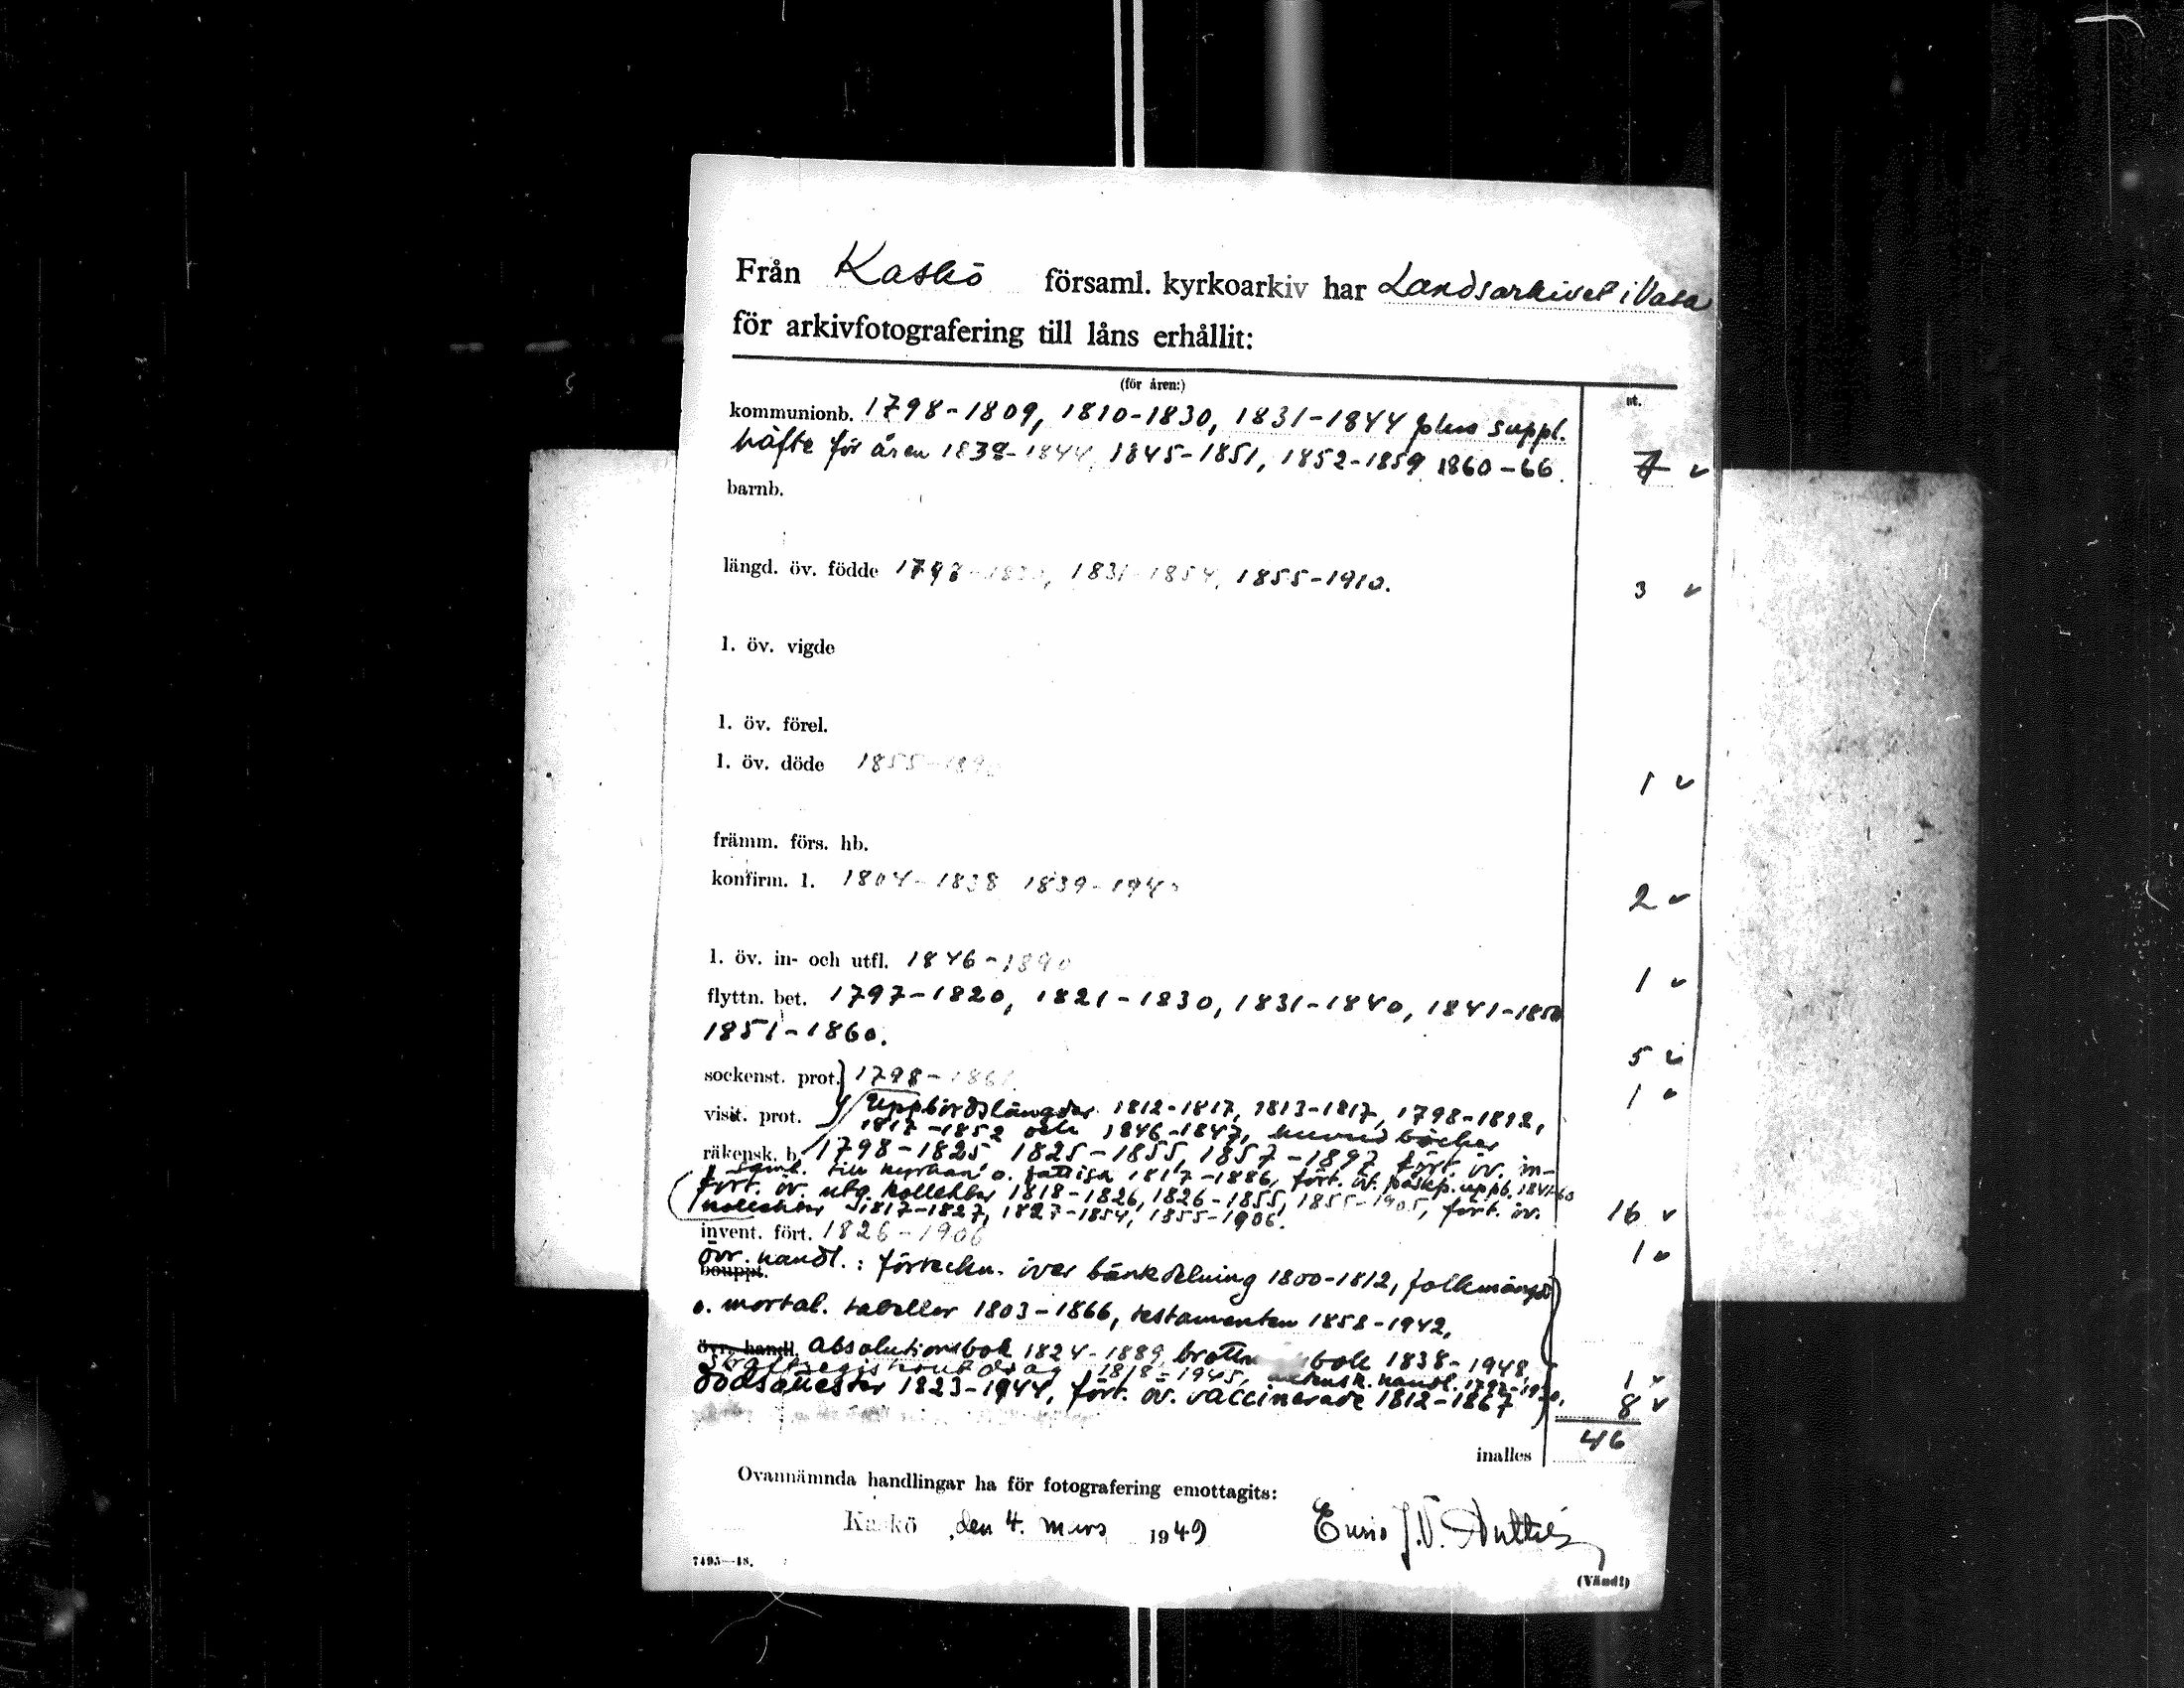 Från Kaskö församl. kyrkoarkiv har Landsarkivet i Vasa
för arkivfotografering till låns erhållit:
(för åren:)
st.
kommunionb. 1798-1809, 1810-1830, 1831-1844 plus suppl.
häfte för åren 1838-1844, 1845-1851, 1852-1859, 1860-66. 7 v
barnb.
längd. öv. födde 1798-1830, 1831-1854, 1855-1910. 3 v
l. öv. vigde
l. öv. förel.
l. öv. döde 1855-1890 1 v
främm. förs. hb.
konfirm. l. 1804-1838 1839-1940 2 v
l. öv. in- och utfl. 1846-1890 1 v
flyttn. bet. 1797-1820, 1821-1830, 1831-1840, 1841-1850
1851-1860. 5 v
sockenst. prot. 1798- 1 v
visit. prot. Uppbördslängder 1812-1817, 1813-1817, 1798-1812,
1817-1852 och 1846-1847, böcker
räkensk. b. 1798-1825 1825-1855, 1857-1897 fört. öv. in-
saml. till kyrkan o. fattiga 1817-1886, fört. öv. påskp. uppb. 1841-60
fört. öv. utg. kollekter 1818-1826, 1826-1855, 1855-1905, fört. öv.
kollekter 1817-1827, 1827-1854, 1855-1906. 16 v
invent. fört. 1826-1906 1 v
övr. handl.: förteckn. över bänkdelning 1800-1812, folkmängd
bouppt.
o. mortal. tabeller 1803-1866, testamenten 1858-1942,
övr. handl. absolutionsbok 1824-1889, bok 1838-1948,
1818-1945, handl. 1 v
dödsattester 1823-1944, fört. öv. vaccinerade 1812-1867 8 v
inalles 46
Ovannämnda handlingar ha för fotografering emottagits:
Kaskö den 4. mars 1949
7495—48.
(Vänd!)